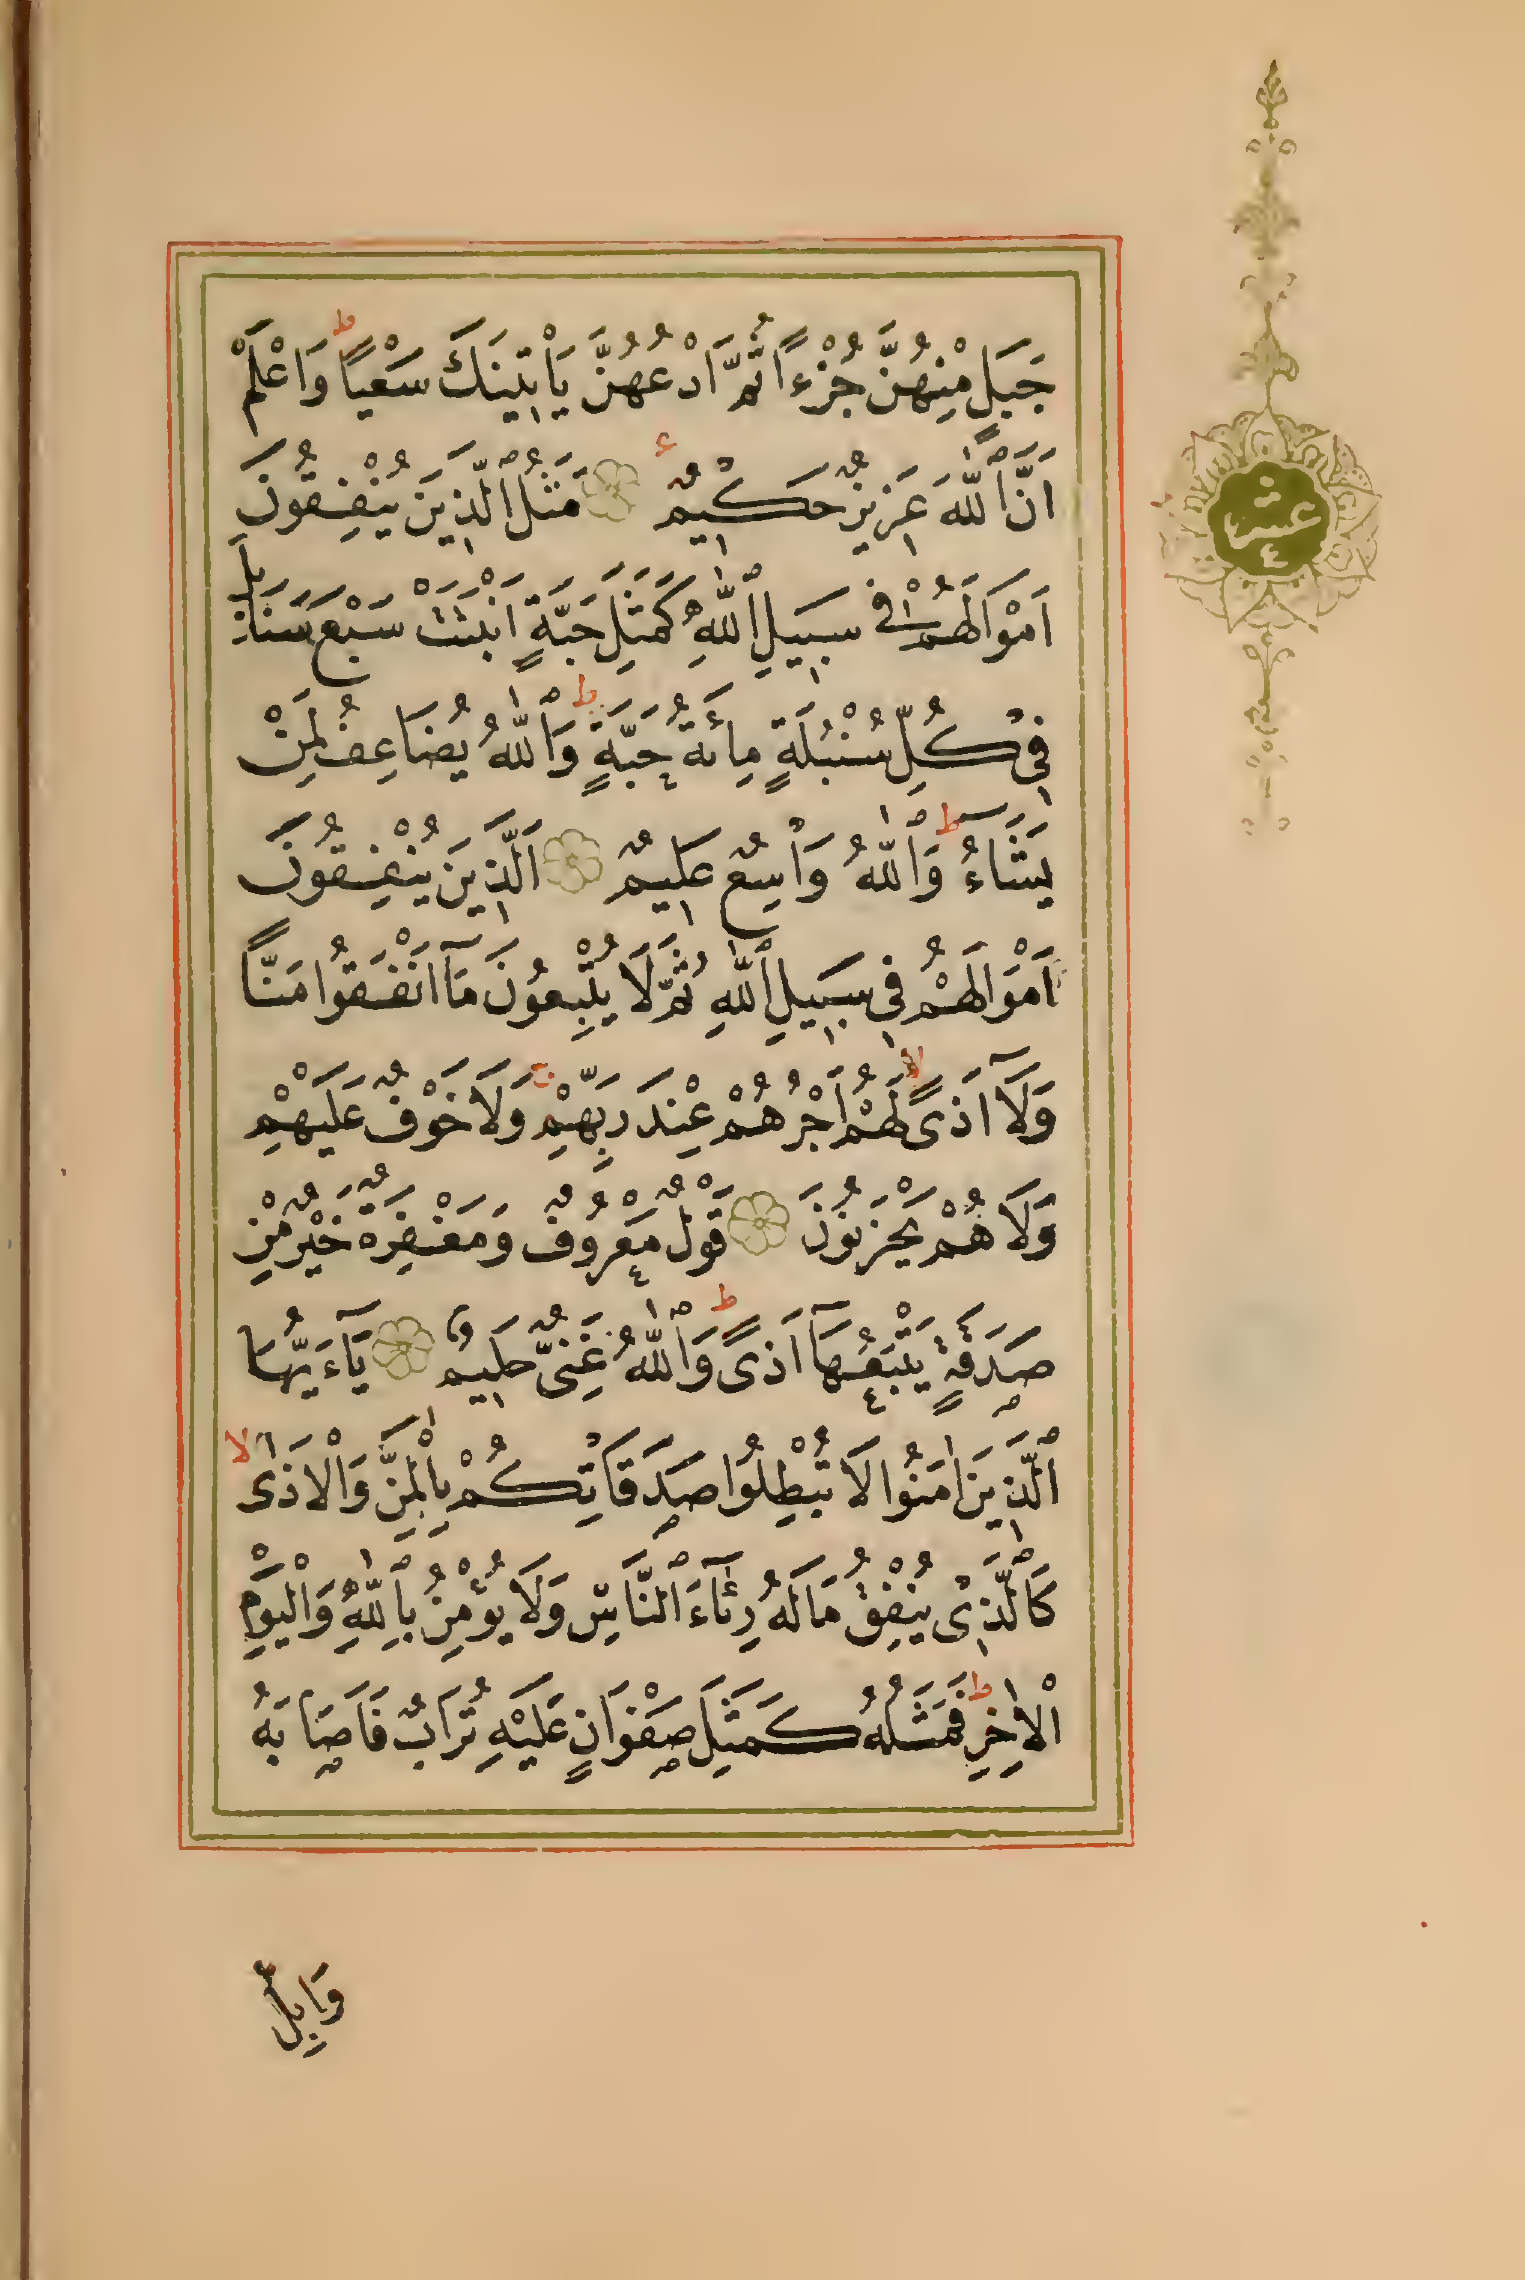 جَبَلٍ مِنْهُنَّ جُزْءًا ثُمَّ ادْعُهُنَّ يَاْتِينَكَ سَعْيًا ط وَاعْلَمْ
اَنَّ اللّٰهَ عَزِيزٌ حَكِيمٌ ع مَثَلُ الَّذِينَ يُنْفِقُونَ
عشر
اَمْوَالَهُمْ فِي سَبِيلِ اللّٰهِ كَمَثَلِ حَبَّةٍ اَنْبَتَتْ سَبْعَ سَنَابِلَ
فِي كُلِّ سُنْبُلَةٍ مِائَةُ حَبَّةٍ ط وَاللّٰهُ يُضَاعِفُ لِمَنْ
يَشَآءُ ط وَاللّٰهُ وَاسِعٌ عَلِيمٌ اَلَّذِينَ يُنْفِقُونَ
اَمْوَالَهُمْ فِي سَبِيلِ اللّٰهِ ثُمَّ لَا يُتْبِعُونَ مَآ اَنْفَقُوا مَنًّا
وَلَآ اَذًى لا لَهُمْ اَجْرُهُمْ عِنْدَ رَبِّهِمْ ج وَلَا خَوْفٌ عَلَيْهِمْ
وَلَا هُمْ يَحْزَنُونَ قَوْلٌ مَعْرُوفٌ وَمَغْفِرَةٌ خَيْرٌ مِنْ
صَدَقَةٍ يَتْبَعُهَآ اَذًى ط وَاللّٰهُ غَنِيٌّ حَلِيمٌ يَآءَيُّهَا
الَّذِينَ اٰمَنُوا لَا تُبْطِلُوا صَدَقَاتِكُمْ بِالْمَنِّ وَالْاَذٰى لا
كَالَّذِي يُنْفِقُ مَالَهُ رِئَآءَ النَّاسِ وَلَا يُؤْمِنُ بِاللّٰهِ وَالْيَوْمِ
الْاٰخِرِ ط فَمَثَلُهُ كَمَثَلِ صَفْوَانٍ عَلَيْهِ تُرَابٌ فَاَصَابَهُ
وَابِلٌ